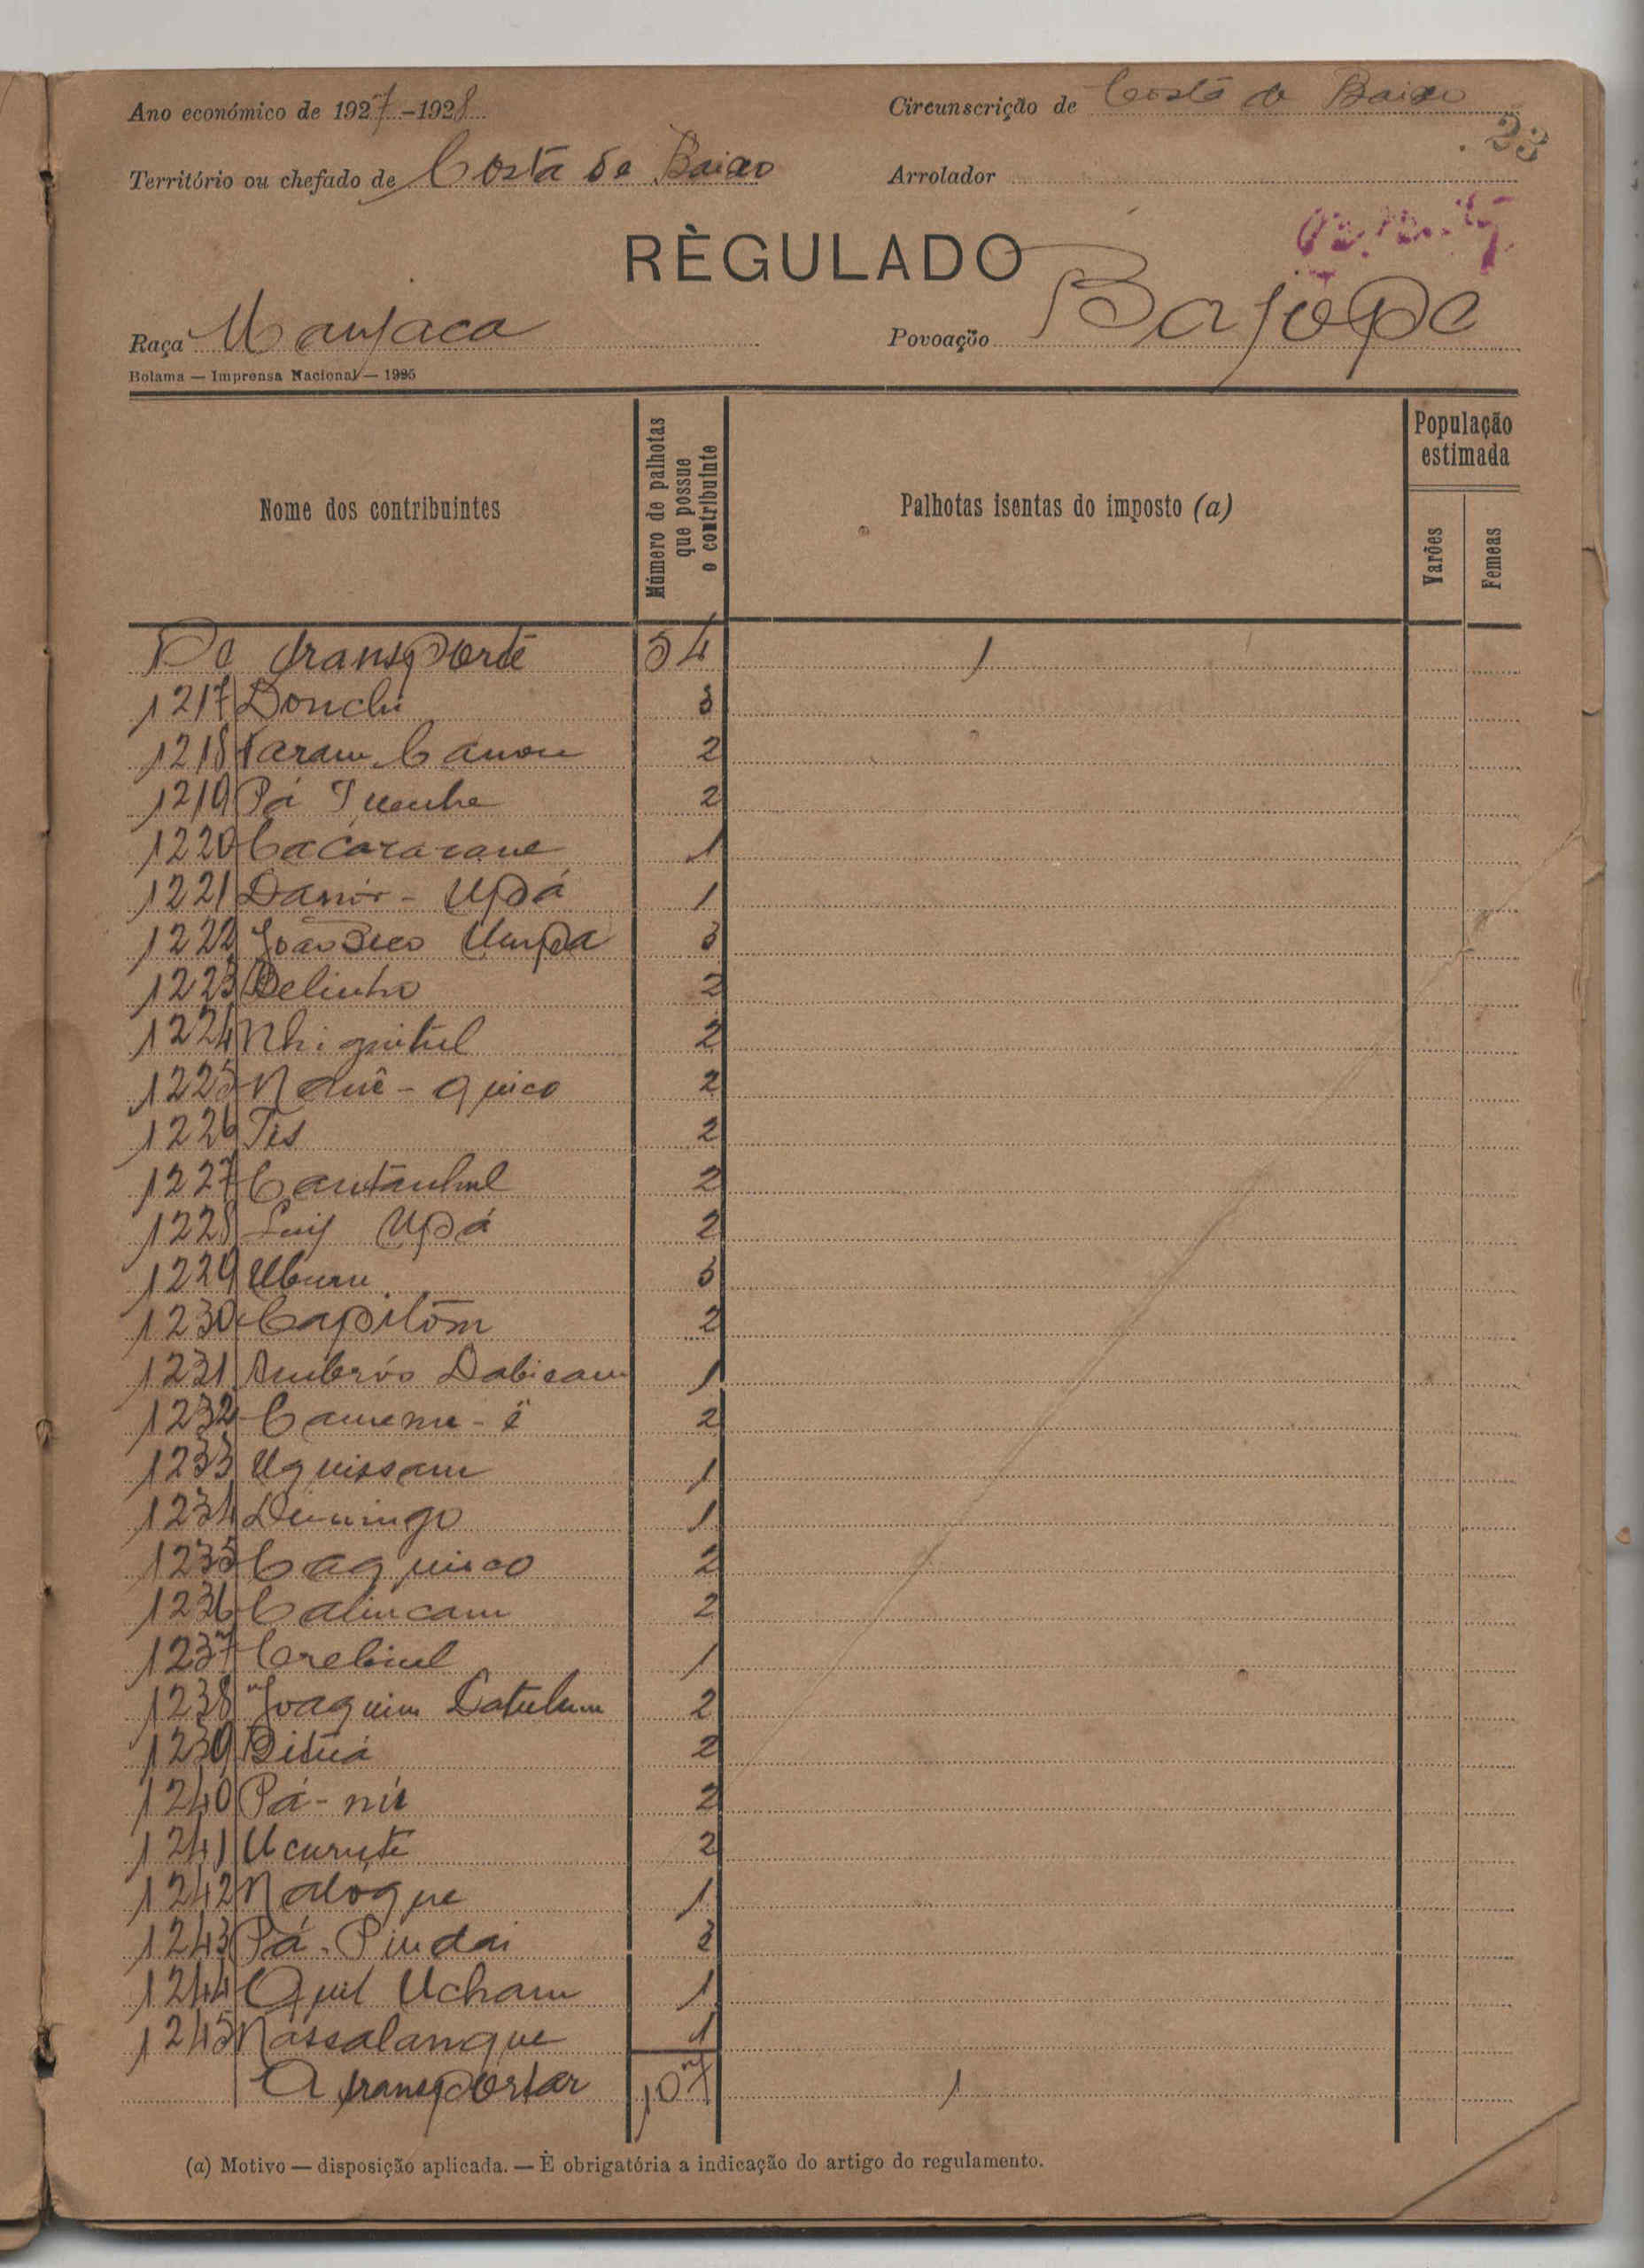 Ano económico de 1927-1928
Circunscrição de Costa de Baixo
33
Território ou chefado de Costa de Baixo
Arrolador
RÈGULADO
Raça Manjaca
Povoação Bajope
Bolama — Imprensa Nacional — 1925
Nome dos contribuintes
Número de palhotas que possue o contribuinte
Palhotas isentas do imposto (a)
População estimada
Varões
Femeas
De transporte 54 1
1217 Donchi 3
1218 Naram Canou 2
1219 Pá Tuenhe 2
1220 Cacararane 1
1221 Damór - Upá 1
1222 João Seco Umpa 3
1223 Belinho 2
1224 Nhi guitul 2
1225 Naué - quico 2
1226 Tis 2
1227 Cantanhul 2
1228 Luiz Upá 2
1229 Uburu 3
1230 Capitõm 2
1231 Ambrós Dabicam 1
1232 Camenu - é 2
1233 Uquissam 1
1234 Demingo 1
1235 Caquisco 2
1236 Calincam 2
1237 Crebiul 1
1238 Joaquim Datulum 2
1239 Bituá 2
1240 Pá - nis 2
1241 Ucurute 2
1242 Naloque 1
1243 Pá - Pindai 3
1244 Quil Ucham 1
1245 Nassalanque 1
A transportar 107 1
(a) Motivo — disposição aplicada. — É obrigatória a indicação do artigo do regulamento.